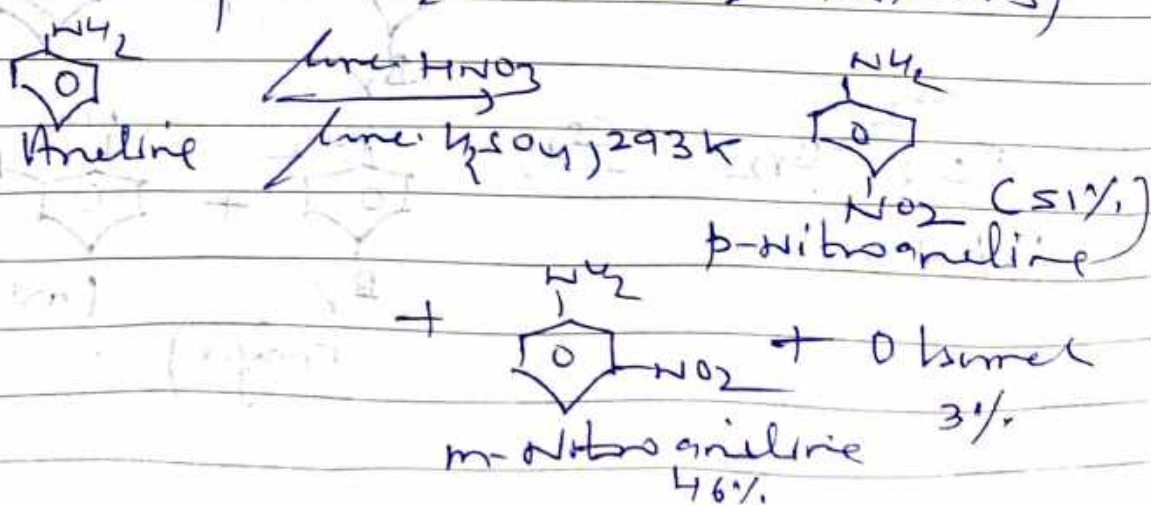 NH2
Aniline
conc. HNO3
conc. H2SO4, 293K
NH2
NO2 (51%)
p-Nitroaniline
+
NH2
NO2
+ O Isomer
3%
m-Nitroaniline
46%